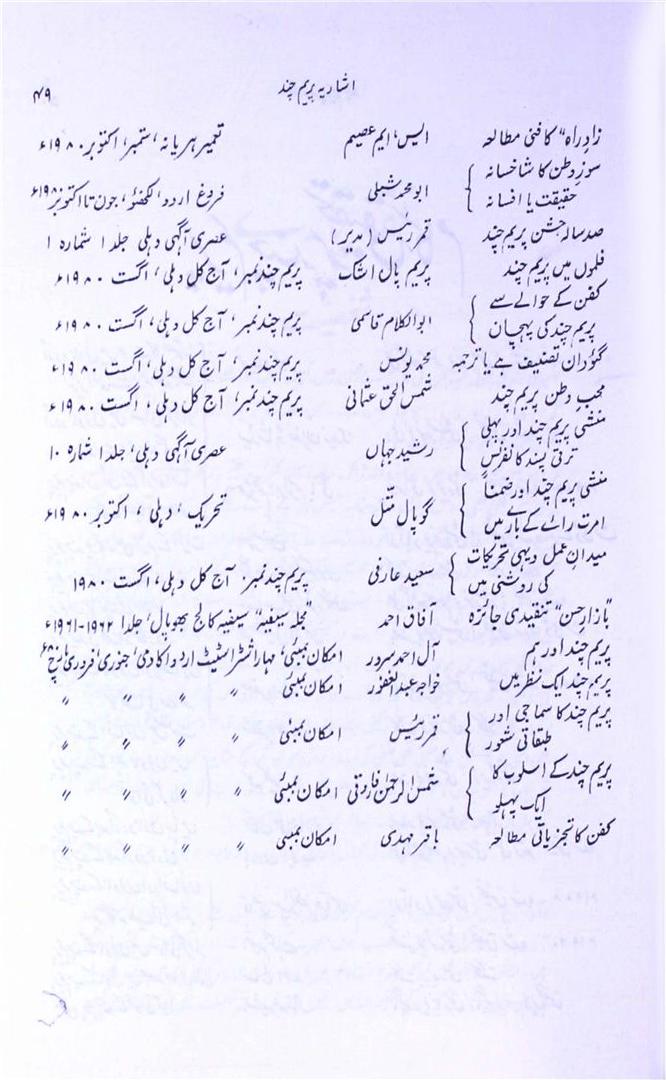 اشاریہ پریم چند
۴۹
زادِ راہ" کا فنی مطالعہ ایس، ایم عصیم تعمیر ہریانہ، ستمبر، اکتوبر ۱۹۸۰ء
سوزِ وطن کا شاخسانہ
حقیقت یا افسانہ ابو محمد شبلی فروغ اردو، لکھنؤ، جون تا اکتوبر ۱۹۸۰ء
صد سالہ جشن پریم چند قمر رئیس (مدیر) عصری آگہی دہلی جلد ۱ شمارہ ۱
فلموں میں پریم چند پریم پال اشک پریم چند نمبر، آج کل دہلی، اگست ۱۹۸۰ء
کفن کے حوالے سے
پریم چند کی پہچان ابوالکلام قاسمی پریم چند نمبر، آج کل دہلی، اگست ۱۹۸۰ء
گؤدان تصنیف ہے یا ترجمہ محمد یونس پریم چند نمبر، آج کل دہلی، اگست ۱۹۸۰ء
محبِ وطن پریم چند شمس الحق عثمانی پریم چند نمبر، آج کل دہلی، اگست ۱۹۸۰ء
منشی پریم چند اور پہلی
ترقی پسند کانفرنس رشید جہاں عصری آگہی دہلی، جلد ۱ شمارہ ۱۰
منشی پریم چند اور ضمناً
امرت رائے کے بارے میں گوپال متل تحریک، دہلی، اکتوبر ۱۹۸۰ء
میدانِ عمل دیہی تحریکات
کی روشنی میں سعید عارفی پریم چند نمبر۔ آج کل دہلی، اگست ۱۹۸۰
"بازارِ حسن" تنقیدی جائزہ آفاق احمد مجلہ سیفیہ" سیفیہ کالج بھوپال، جلد ۱ ۱۹۶۲-۱۹۶۱ء
پریم چند اور ہم آل احمد سرور امکان بمبئی، مہاراشٹر اسٹیٹ اردو اکادمی، جنوری، فروری، مارچ
پریم چند ایک نظر میں خواجہ عبدالغفور امکان بمبئی " " " "
پریم چند کا سماجی اور
طبقاتی شعور قمر رئیس امکان بمبئی " " " "
پریم چند کے اسلوب کا
ایک پہلو شمس الرحمٰن فاروقی امکان بمبئی " " " "
کفن کا تجزیاتی مطالعہ باقر مہدی امکان بمبئی " " " "